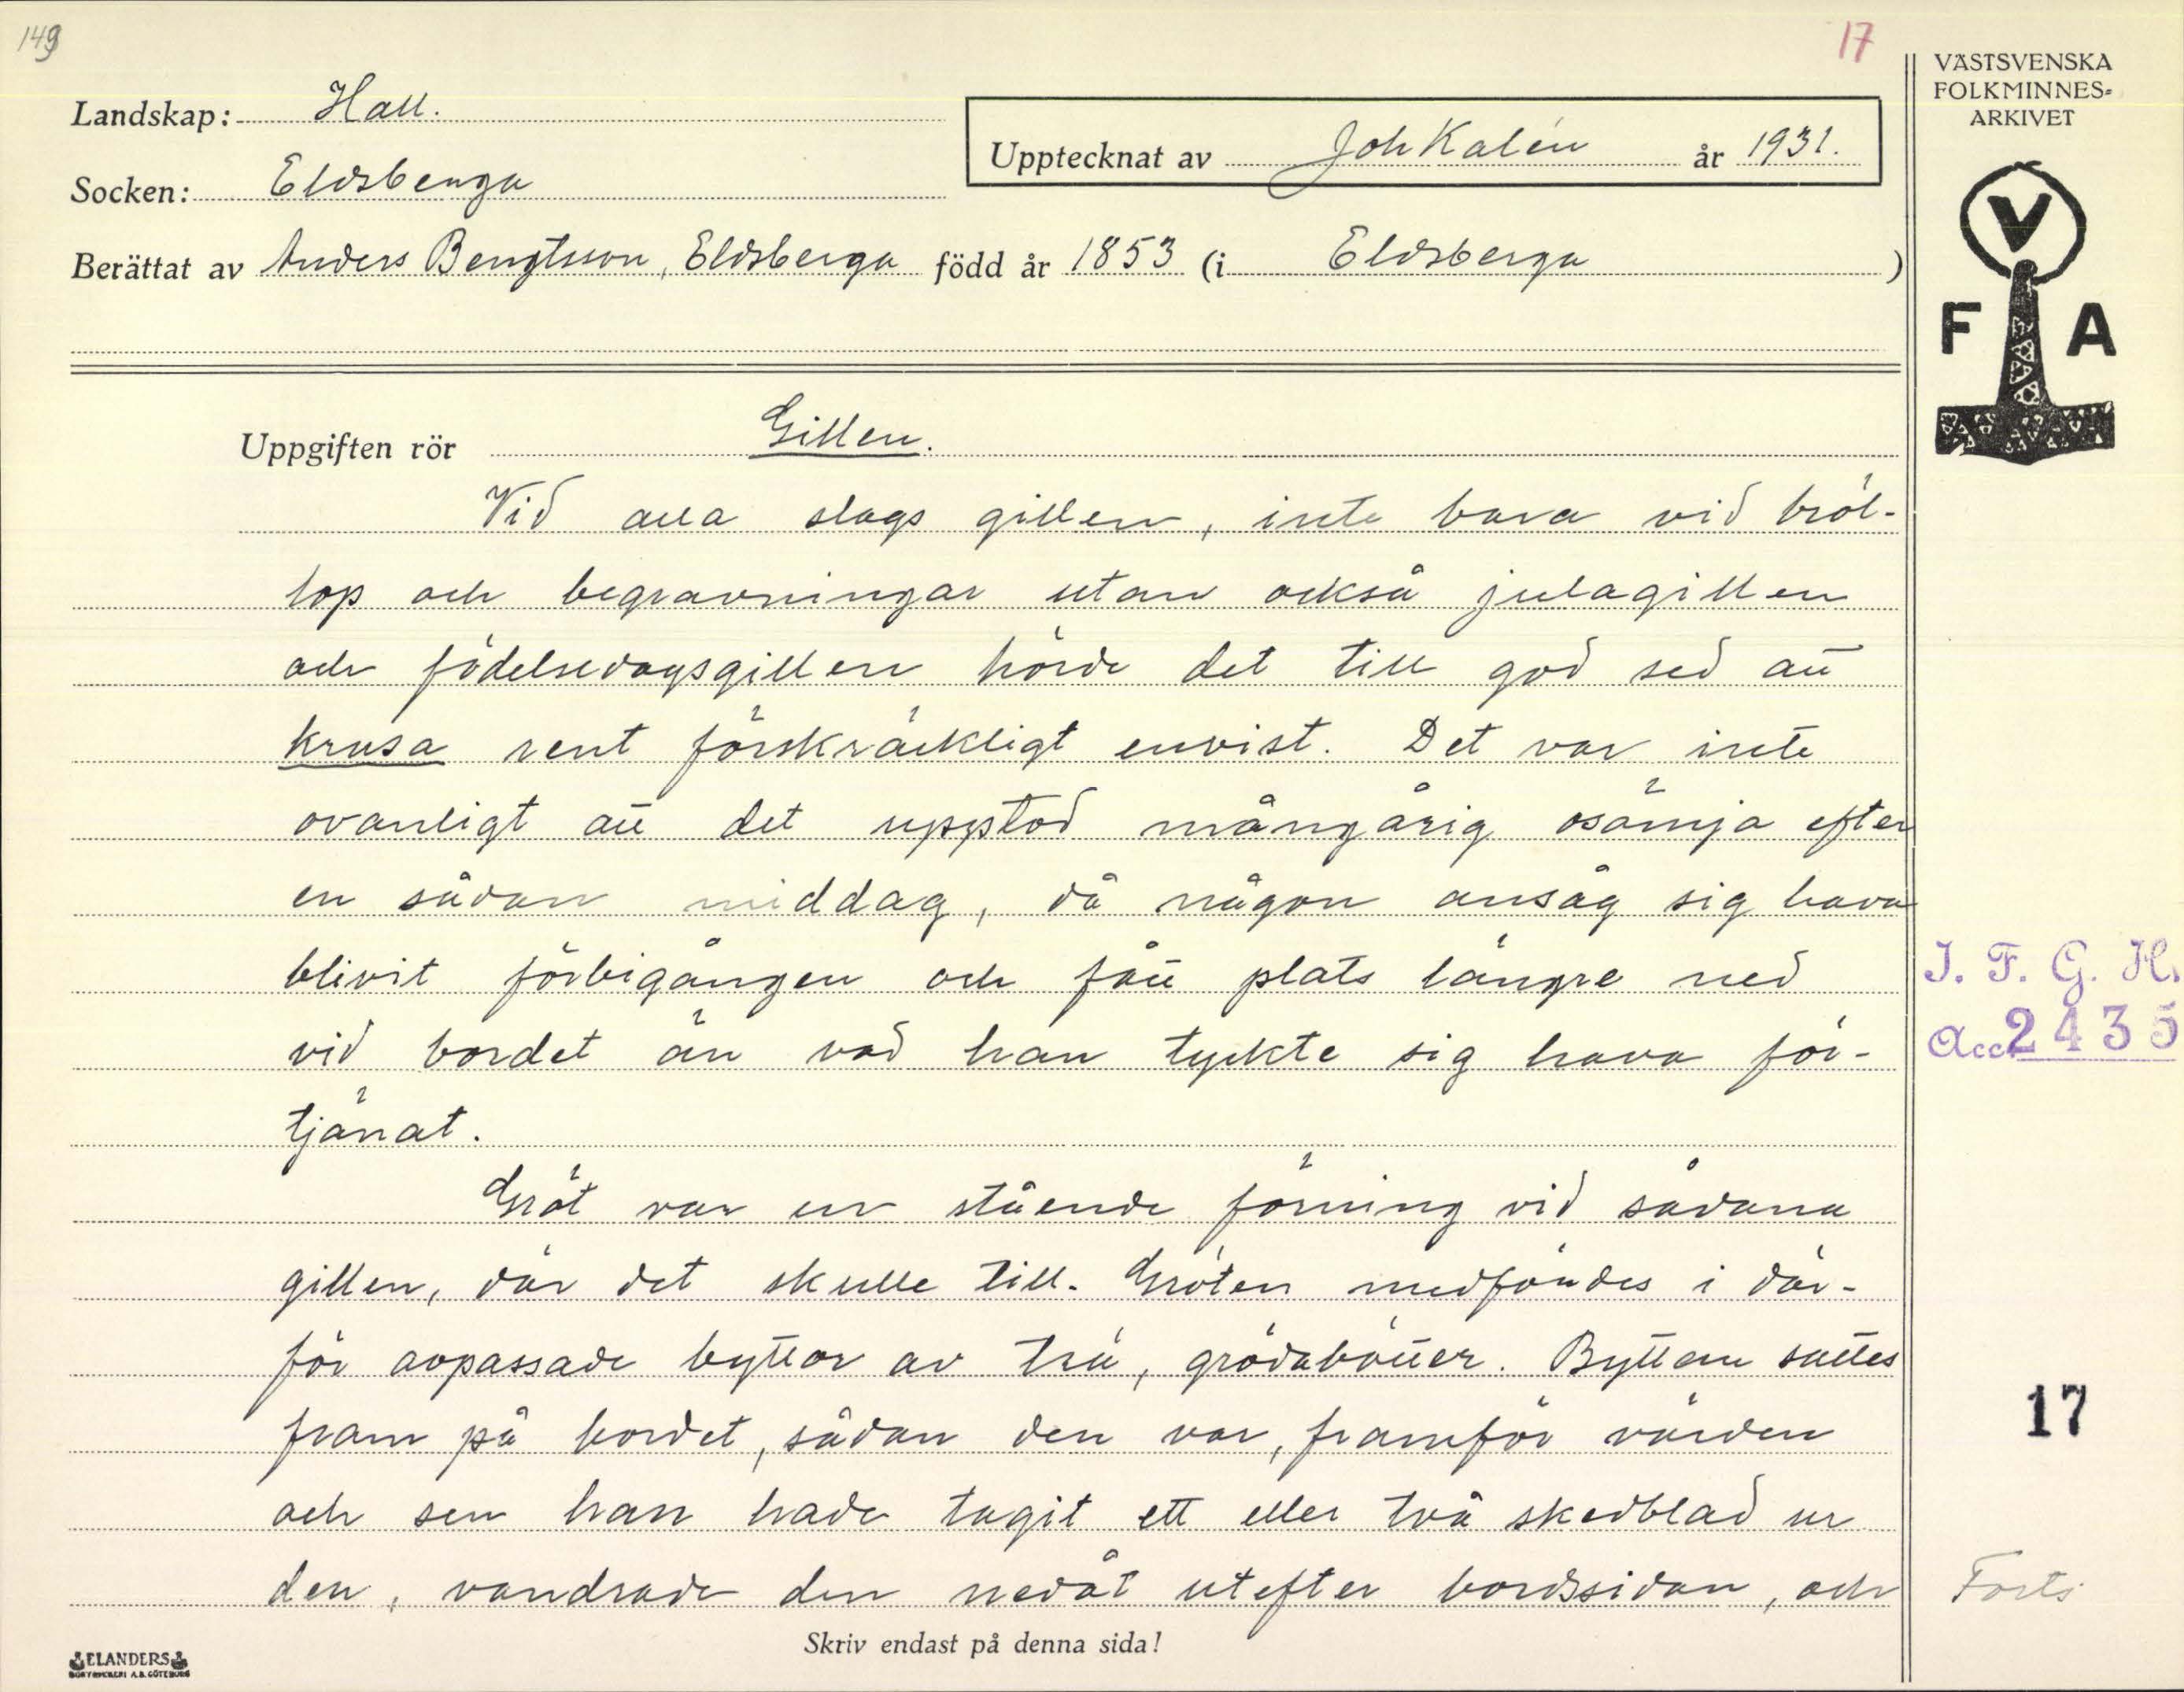 149
17
VÄSTSVENSKA
FOLKMINNES=
ARKIVET
Landskap: Hall.
Upptecknat av Joh Kalén år 1931.
Socken: Eldsberga
Berättat av Anders Bengtsson, Eldsberga född år 1853 (i Eldsberga )
V
F A
Uppgiften rör Gillen.
Vid alla slags gillen, inte bara vid bröl-
lop och begravningar utan också julagillen
och födelsedagsgillen hörde det till god sed att
krusa rent förskräckligt envist. Det var inte
ovanligt att det uppstod mångårig osämja efter
en sådan middag, då någon ansåg sig hava
blivit förbigången och fått plats längre ned
vid bordet än vad han tyckte sig hava för-
tjänat.
Gröt var en stående förning vid sådana
gillen, där det skulle till. Gröten medfördes i där-
för avpassade byttor av trä, grödabötter. Byttan sattes
fram på bordet, sådan den var, framför värden
och sen han hade tagit ett eller två skedblad ur
den, vandrade den nedåt utefter bordssidan, och
J. F. G. H.
Acc. 2435
17
Forts
Skriv endast på denna sida!
ELANDERS
BOKTRYCKERI A.B. GÖTEBORG